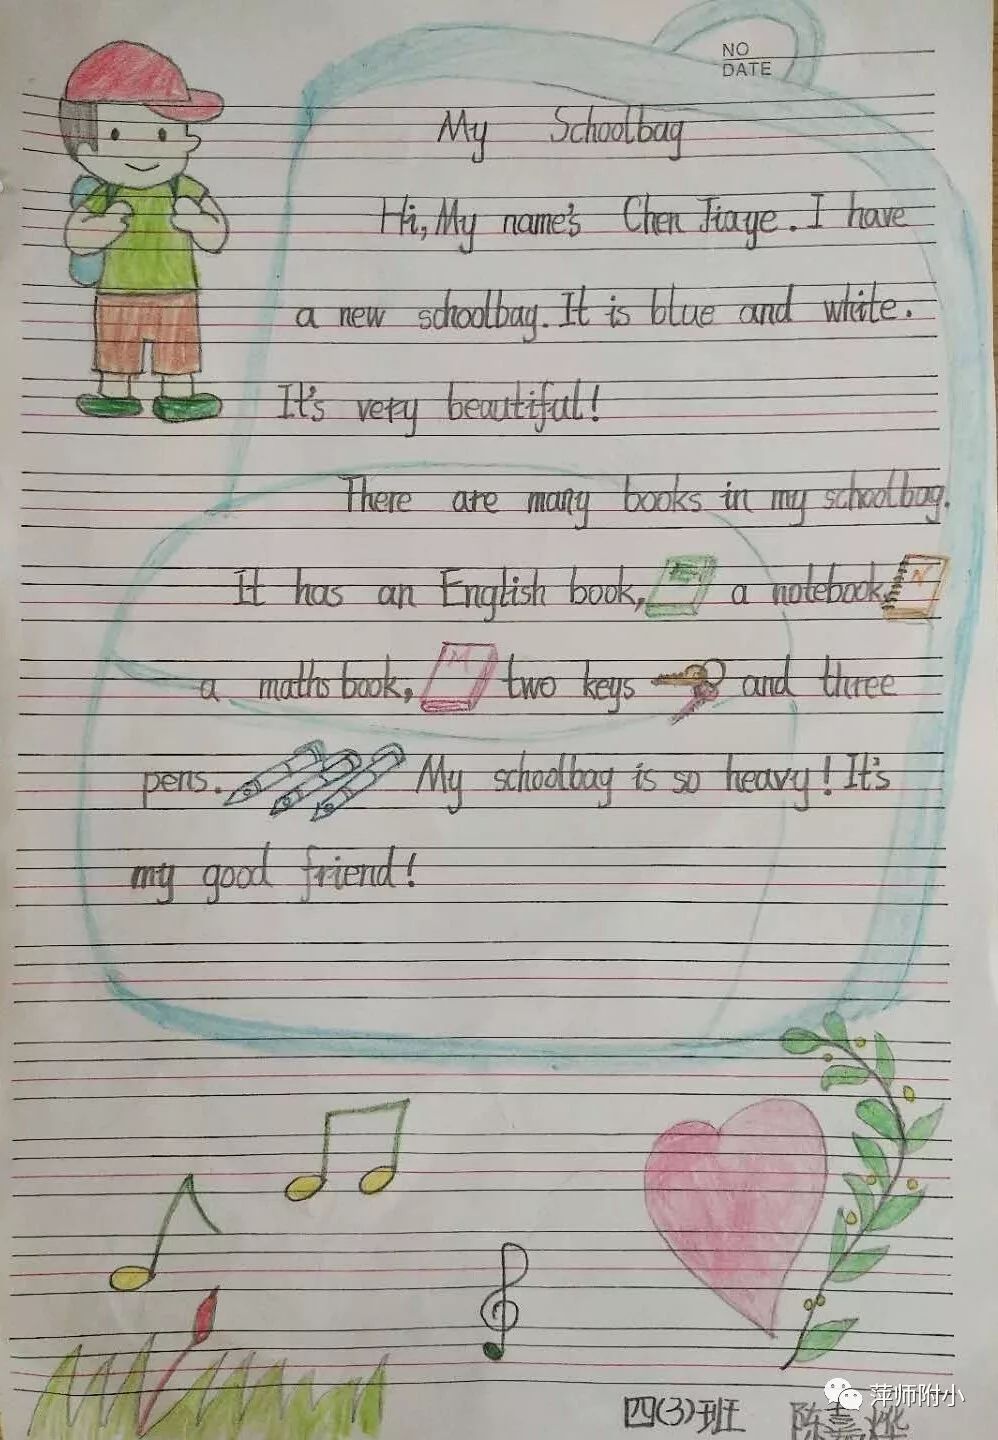 NO
DATE
My Schoolbag
Hi, My name's Chen Jiaye. I have
a new schoolbag. It is blue and white.
It's very beautiful!
There are many books in my schoolbag.
It has an English book, E a notebook, N
a maths book, M two keys and three
pens. My schoolbag is so heavy! It's
my good friend!
四(3)班 陈嘉烨
萍师附小